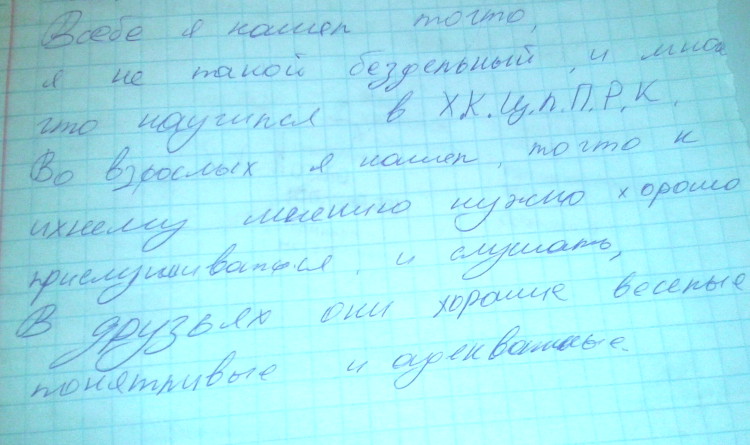 Всебе я нашел тогто,
я не такой бездельный, и много
что научился в Х.К.Ц.П.П.Р.К.
Во взрослых я нашел, тогто к
ихнему мнению нужно хорошо
прислушиваться и слушать,
В друзьях они хорошие веселые
понятливые и адекватные.